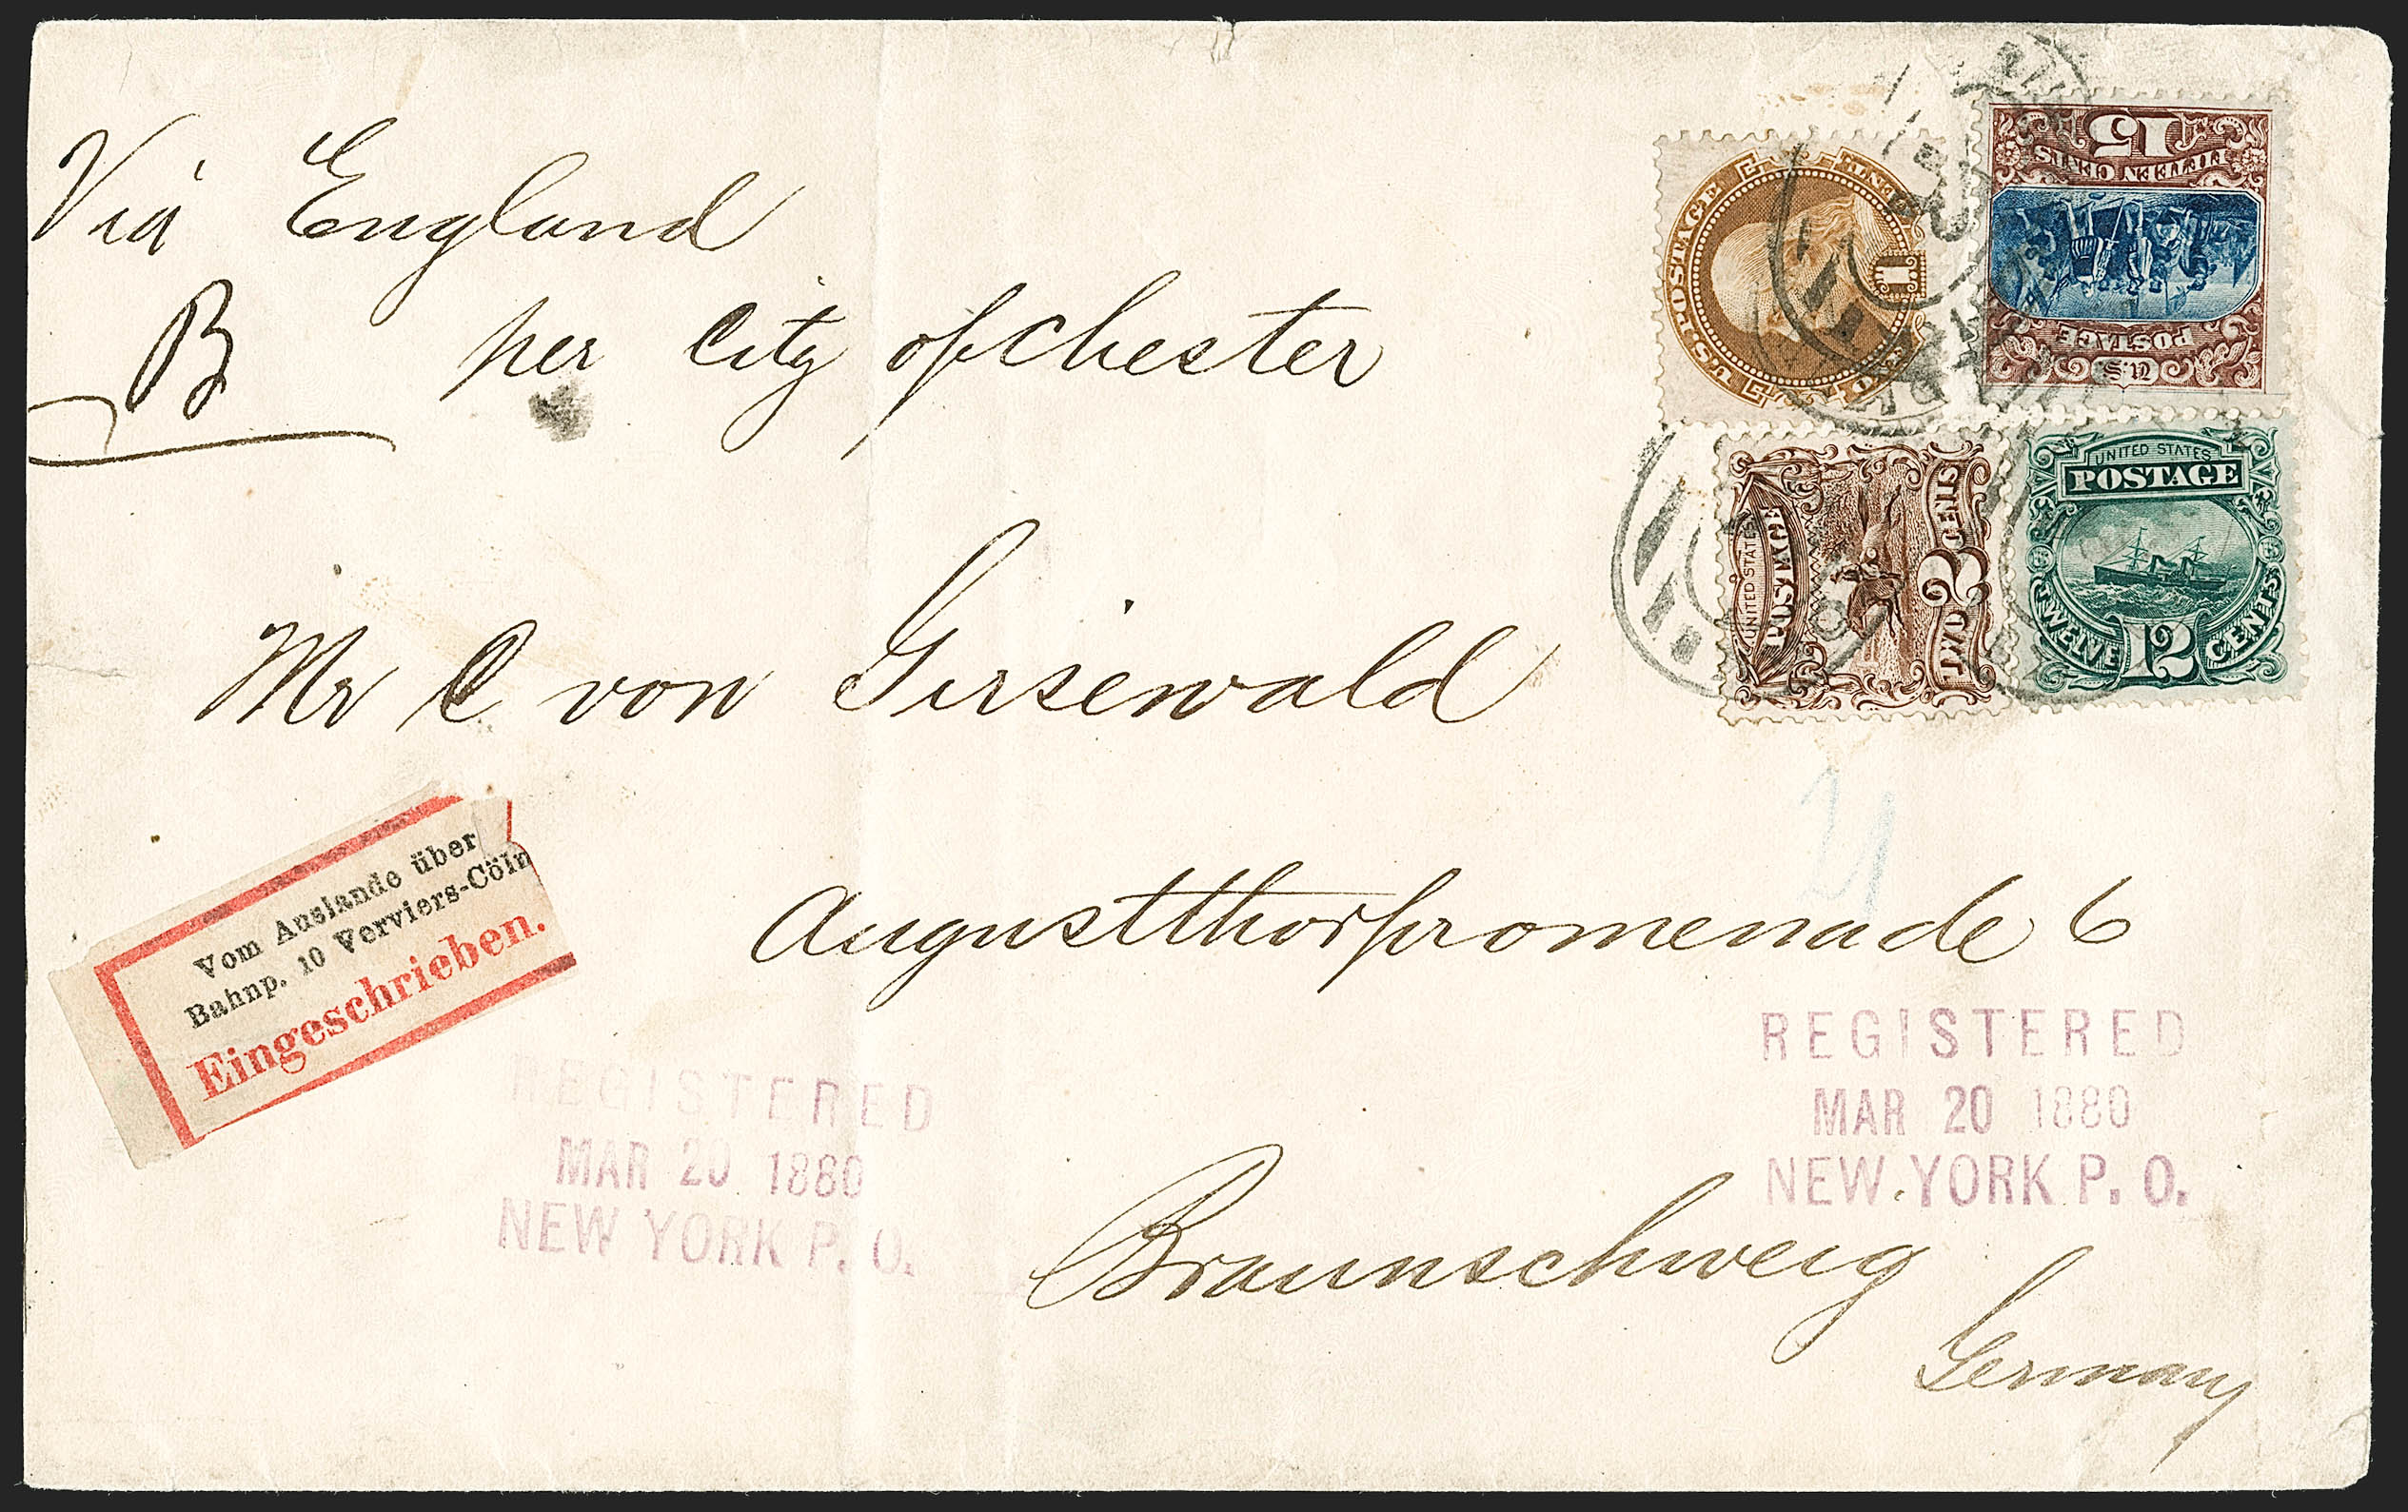 Via England
B per City of Chester
U.S. POSTAGE
ONE CENT
1
15
FIFTEEN CENTS
POSTAGE
U.S.
UNITED STATES
POSTAGE
TWO CENTS
2
UNITED STATES
POSTAGE
TWELVE CENTS
12
Mr C von Girsewald
21
Vom Auslande über
Bahnp. 10 Verviers-Cöln
Eingeschrieben.
Augustthorpromenade 6
REGISTERED
MAR 20 1880
NEW YORK P. O.
REGISTERED
MAR 20 1880
NEW YORK P. O.
Braunschweig
Germany